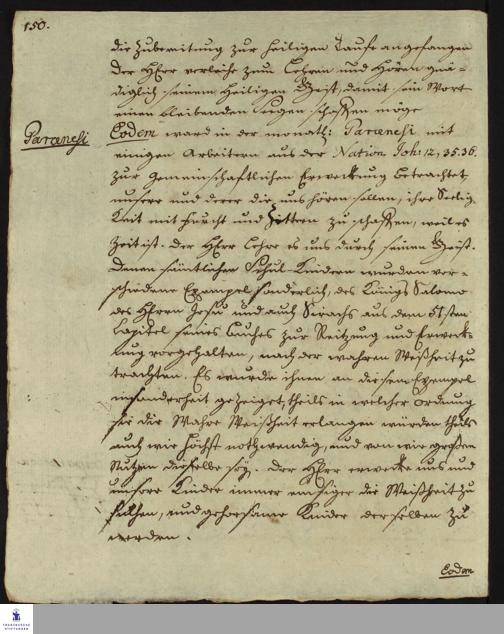 150.
die Zubereitung zur heiligen Taufe angefangen
Der HErr verleihe zum Lehren und Hören gnä-
diglich seinen Heiligen Geist, damit sein Wort
einen bleibenden Segen schaffen möge
Paranesi
Eodem ward in der monath: Paranesi mit
einigen Arbeitern aus der Nation Joh: 12, 35.36.
zur gemeinschaftlichen Erweckung betrachtet,
unsere und derer die uns hören sollen, ihre Seelig-
keit mit Furcht und Zittern zu schaffen, weil es
Zeit ist. Der HErr Lehre es uns durch seinen Geist.
Denen sämtlichen Schul-Kindern wurden ver-
schiedene Exempel sonderlich, des Königs Salomo
des HErrn Jesu und auch Sirachs aus dem 51sten
Capitel seines Buches zur Reitzung und Erweck-
ung vorgehalten, nach der wahren Weißheit zu
trachten. Es wurde ihnen an diesen Exempel
insonderheit gezeiget, theils in welcher Ordnung
sie die Wahre Weißheit erlangen würden theils
auch wie höchst nothwendig, und von wie großen
Nutzen dieselbe sey. Der HErr erwecke uns und
unsere Kinder immer emsiger die Weißheit zu
suchen, und gehorsame Kinder derselben zu
werden.
Eodem
FRANCKESCHE
STIFTUNGEN